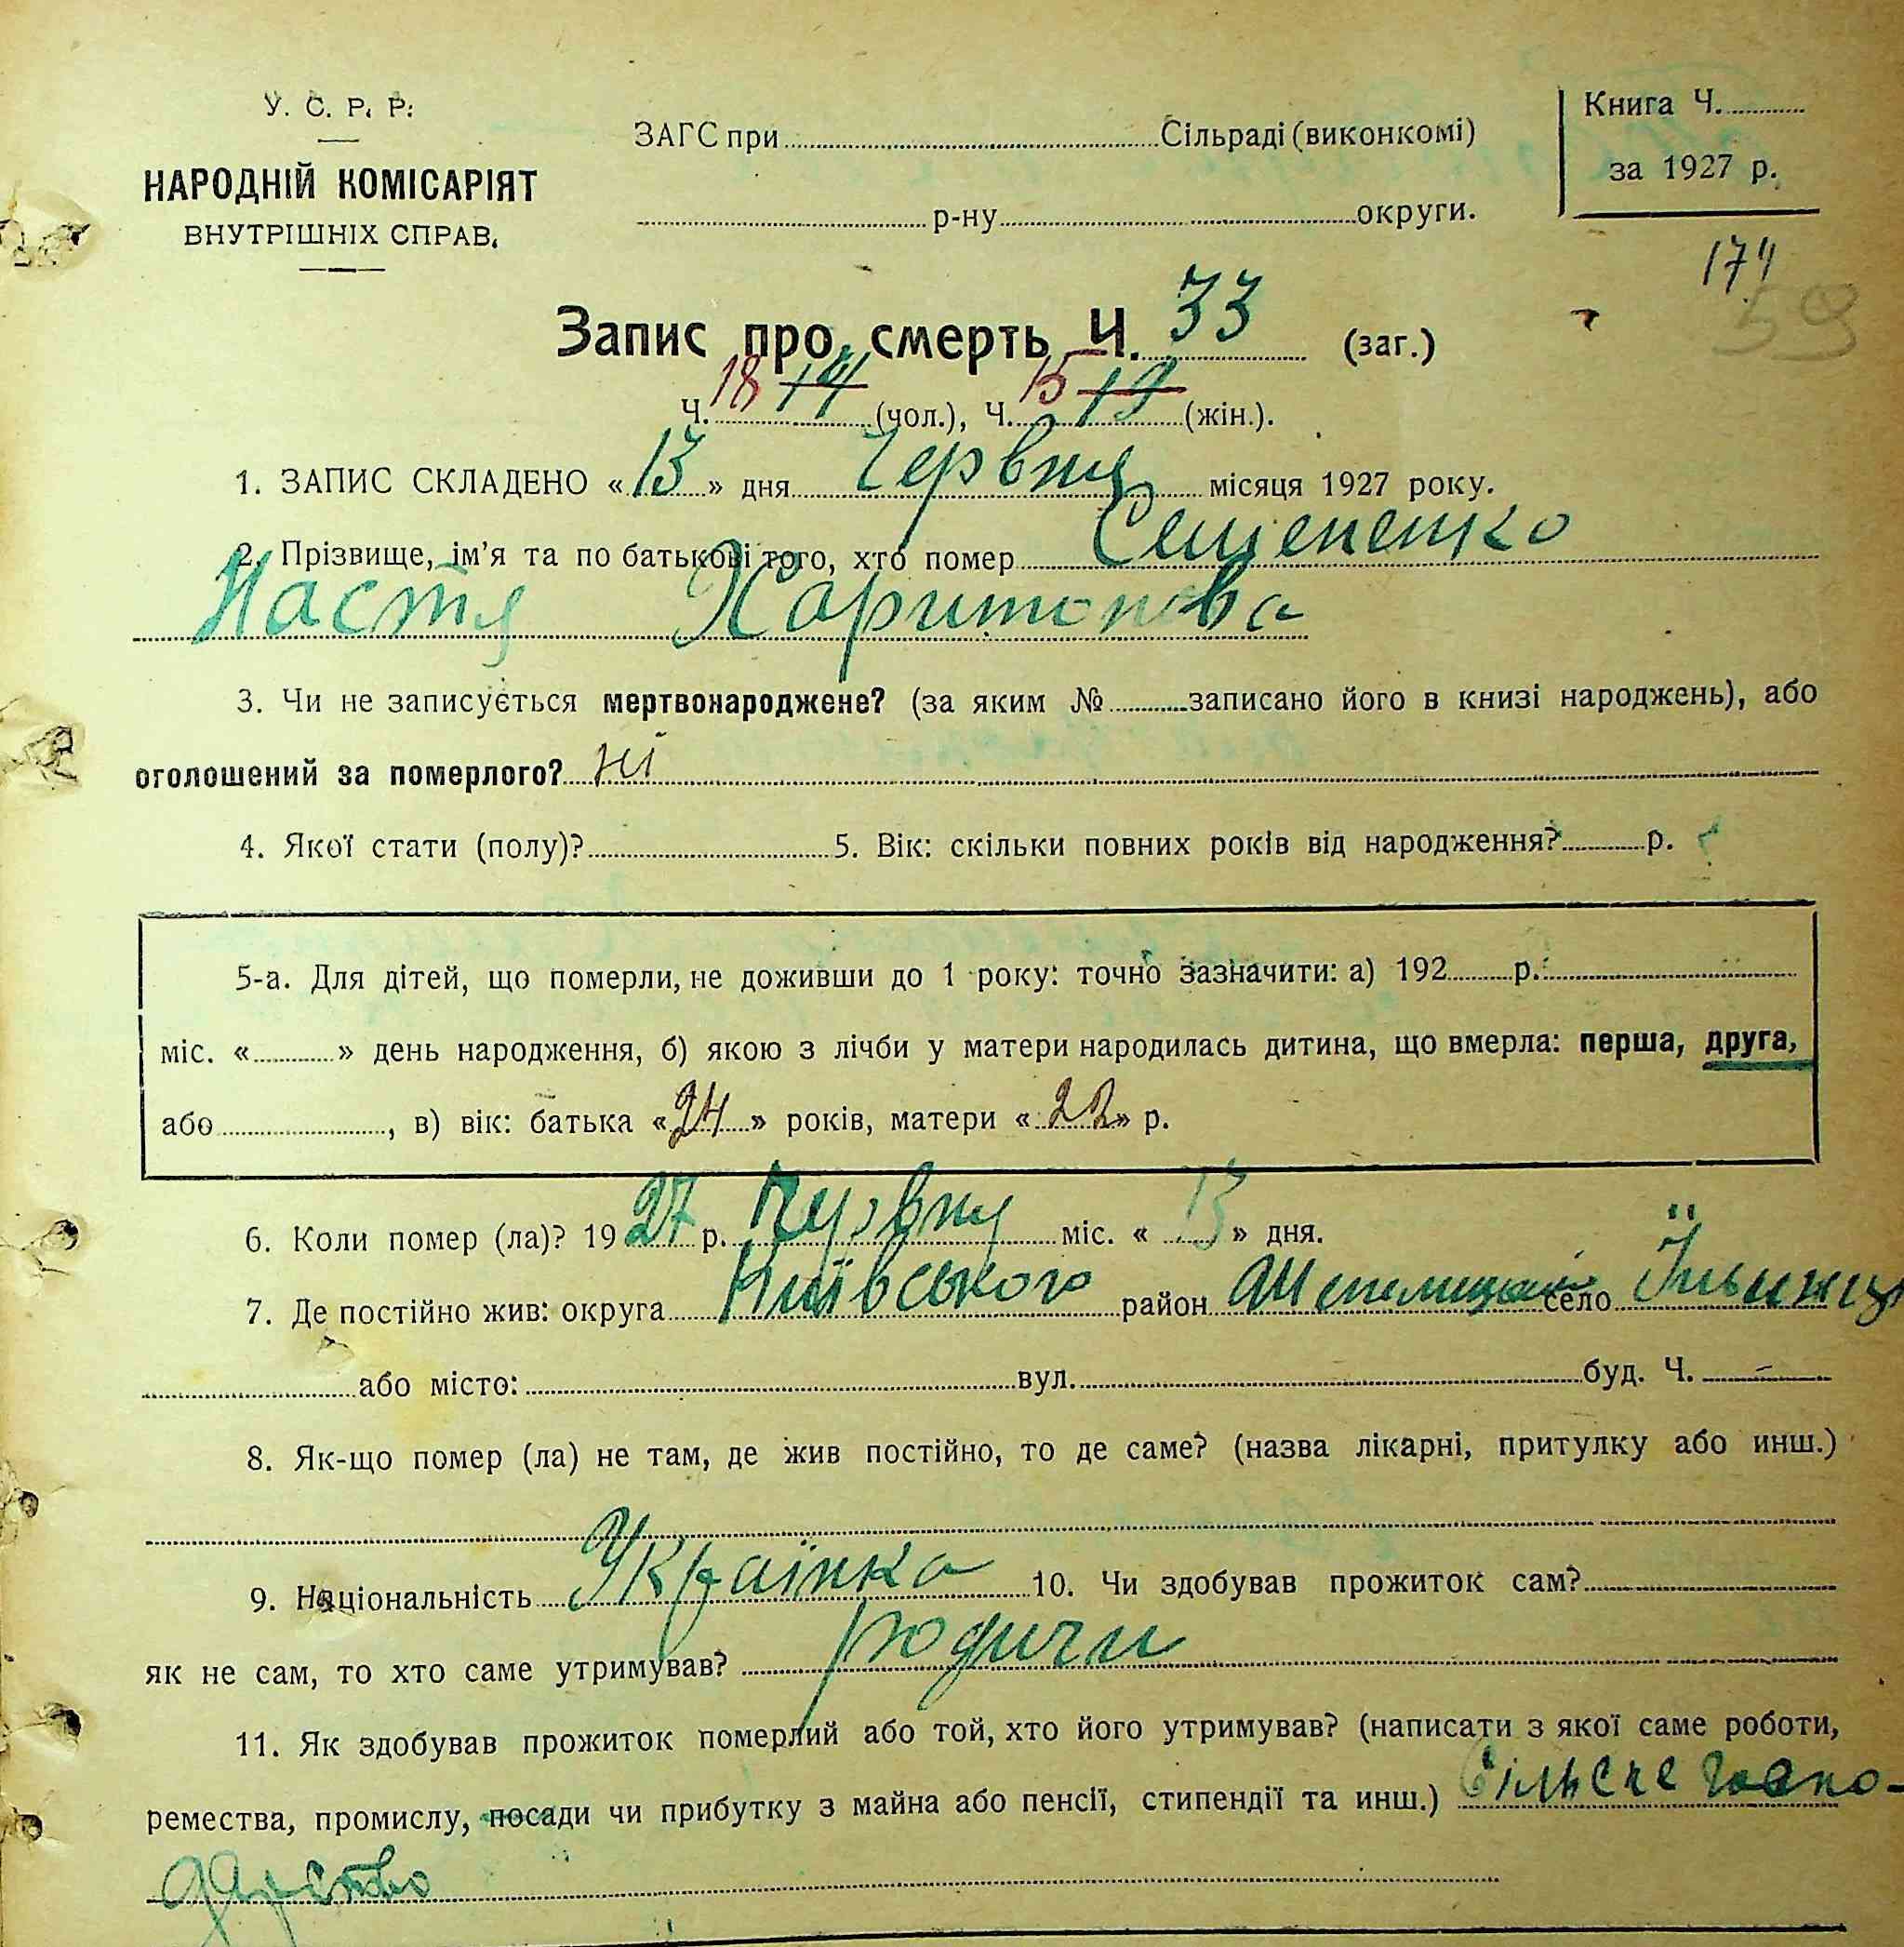 У. С. Р. Р.
НАРОДНІЙ КОМІСАРІЯТ
ВНУТРІШНІХ СПРАВ.
ЗАГС при Сільраді (виконкомі)
р-ну округи.
Книга Ч.
за 1927 р.
174
59
Запис про смерть Ч. 33 (заг.)
Ч. 18 14 (чол.), Ч. 15 19 (жін.).
1. ЗАПИС СКЛАДЕНО «13» дня Червня місяця 1927 року.
2. Прізвище, ім'я та по батькові того, хто помер
Настя Харитонова
3. Чи не записується мертвонароджене? (за яким № записано його в книзі народжень), або
оголошений за померлого? ні
4. Якої стати (полу)? 5. Вік: скільки повних років від народження? р.
5-а. Для дітей, що померли, не доживши до 1 року: точно зазначити: а) 192 р.
міс. « » день народження, б) якою з лічби у матери народилась дитина, що вмерла: перша, друга,
або , в) вік: батька «24» років, матери «22» р.
6. Коли помер (ла)? 1927 р. Червня міс. «13» дня.
7. Де постійно жив: округа Київського район Шепелицький село Їльинці
або місто: вул. буд. Ч. –
8. Як-що помер (ла) не там, де жив постійно, то де саме? (назва лікарні, притулку або инш.)
9. Національність Українка 10. Чи здобував прожиток сам?
як не сам, то хто саме утримував? родичи
11. Як здобував прожиток померлий або той, хто його утримував? (написати з якої саме роботи,
ремества, промислу, посади чи прибутку з майна або пенсії, стипендії та инш.) Сільске госпо-
дарство